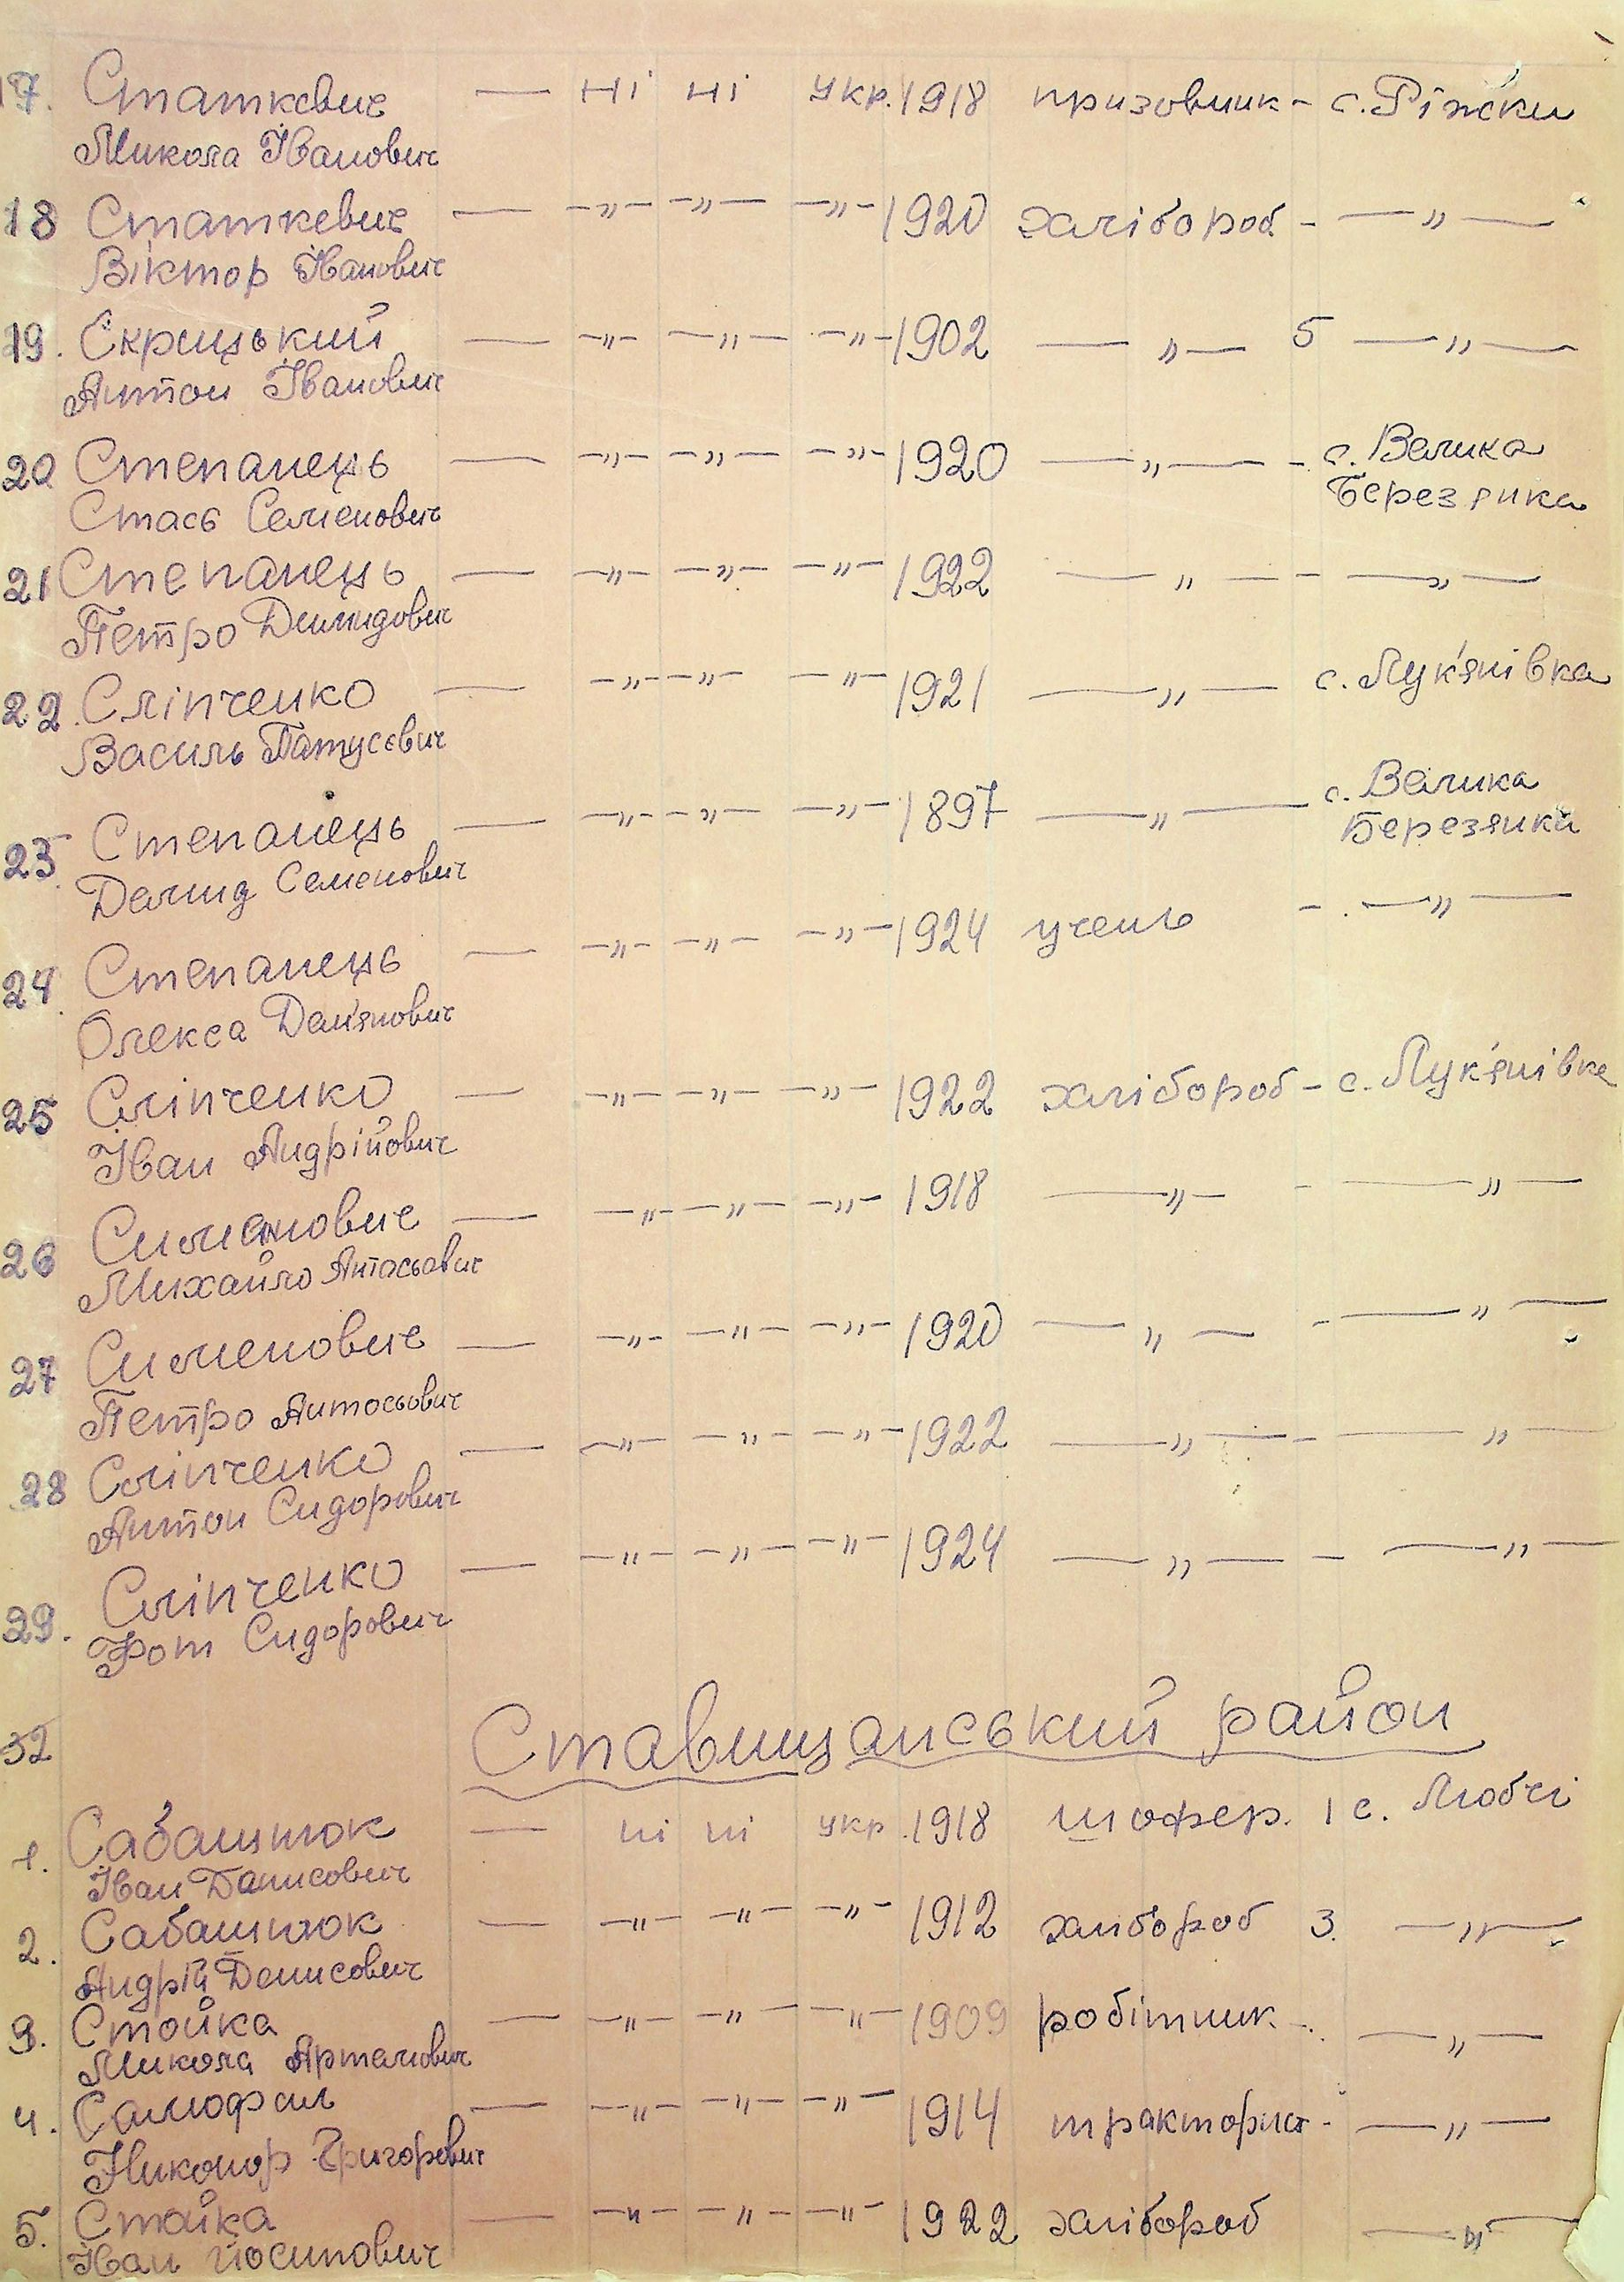 17. Статкевич — ні ні укр. 1918 призовник - с. Ріжки
Микола Іванович
18 Статкевич — —„— —„— —„— 1920 хлібороб - —„—
Віктор Іванович
19. Скрицький — —„— —„— —„— 1902 —„— 5 —„—
Антон Іванович
20 Степанець — —„— —„— —„— 1920 —„— - с. Велика
Стась Семенович Березянка
21 Степанець — —„— —„— —„— 1922 —„— - —„—
Петро Демидович
22. Сліпченко — —„— —„— —„— 1921 —„— с. Лук'янівка
Василь
23. Степанець — —„— —„— —„— 1897 —„— с. Велика
Демид Семенович Березянка
24. Степанець — —„— —„— —„— 1924 учень - —„—
Олекса Дем'янович
25 Сліпченко — —„— —„— —„— 1922 хлібороб - с. Лук'янівка
Іван Андрійович
26 Симанович — —„— —„— —„— 1918 —„— - —„—
Михайло Антосьович
27 Сименович — —„— —„— —„— 1920 —„— - —„—
Петро Антосьович
28 Сліпченко — —„— —„— —„— 1922 —„— - —„—
Антон Сидорович
29. Сліпченко — —„— —„— —„— 1924 —„— - —„—
Фот Сидорович
32 Ставищанський район
1. Сабашнюк — ні ні укр. 1918 шофер. 1 с. Любчі
Іван Данисович
2. Сабашнюк — —„— —„— —„— 1912 хлібороб 3. —„—
Андрій Денисович
3. Стойка — —„— —„— —„— 1909 робітник - —„—
Микола Артемович
4. Самофал — —„— —„— —„— 1914 тракторист - —„—
Никонор Григорович
5. Стойка — —„— —„— —„— 1922 хлібороб —„—
Іван Йосипович